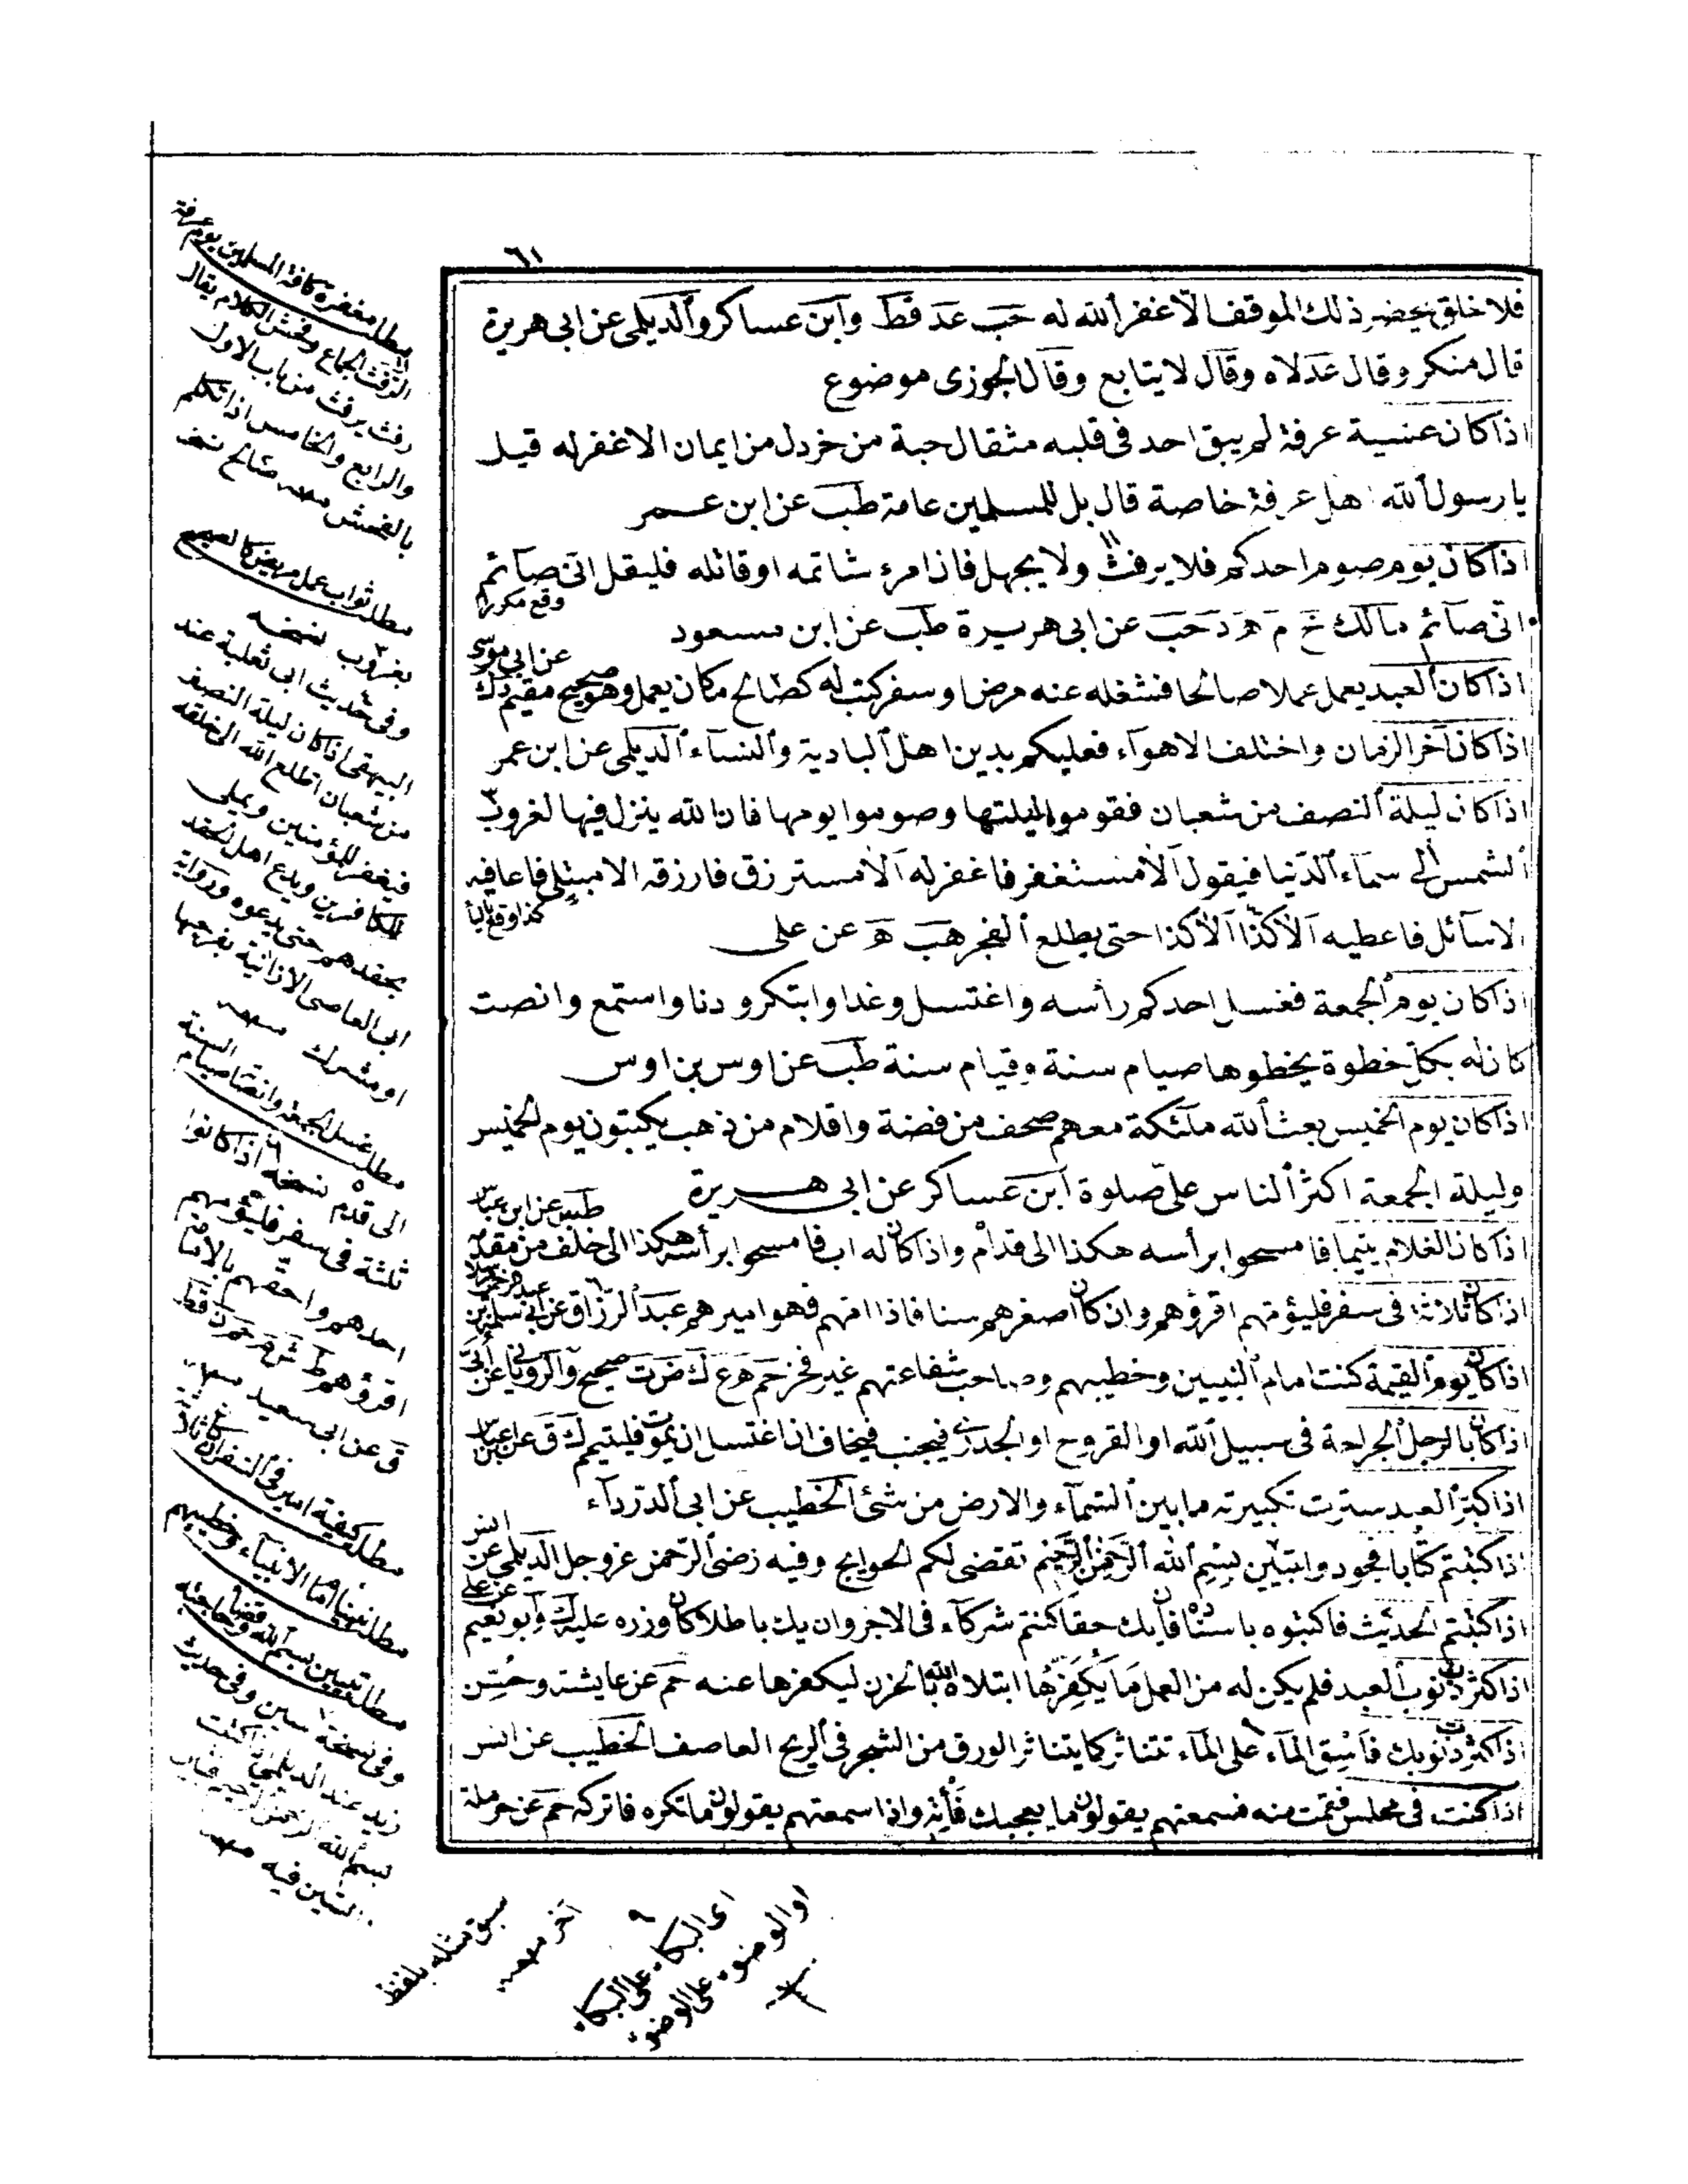 ٦١
فلا خلق يحضر ذلك الموقف الا غفر الله له حب عد قط وابن عساكر والديلمى عن ابى هريرة
قال منكر وقال عد لاه وقال لا يتابع وقال الجوزى موضوع
اذا كان عشية عرفة لم يبق احد فى قلبه مثقال حبة من خردل من ايمان الا غفر له قيل
يا رسول الله هل عرفة خاصة قال بل للمسلمين عامة طب عن ابن عمر
اذا كان يوم صوم احدكم فلا يرفث ولا يجهل فان امرء شاتمه او قاتله فليقل انى صآئم
وقع مكررا
انى صآئم مالك خ م ه د حب عن ابى هريرة طب عن ابن مسعود
عن ابى موسى
اذا كان العبد يعمل عملا صالحا فشغله عنه مرض او سفر كتب له كصالح مكان يعمل وهو صحيح مقيم د ك
اذا كان آخر الزمان واختلف الاهوآء فعليكم بدين اهل البادية والنسآء الديلمى عن ابن عمر
اذا كان ليلة النصف من شعبان فقوموا ليلتها وصوموا يومها فان الله ينزل فيها لغروب
الشمس الى سمآء الدنيا فيقول الا مستغفر فاغفر له الا مسترزق فارزقه الا مبتلى فاعافيه
كذا وقع
الا سآئل فاعطيه الا كذا الا كذا حتى يطلع الفجر هب ه عن على
اذا كان يوم الجمعة فغسل احدكم رأسه واغتسل وغدا وابتكر ودنا واستمع وانصت
كان له بكل خطوة يخطوها صيام سنة وقيام سنة طب عن اوس بن اوس
اذا كان يوم الخميس بعث الله ملئكة معهم صحف من فضة واقلام من ذهب يكتبون يوم الخميس
وليلة الجمعة اكثر الناس على صلوة ابن عساكر عن ابى هريرة
طس عن ابن عباس
اذا كان الغلام يتيما فامسحوا برأسه هكذا الى قدام واذا كان له اب فامسحوا برأسه هكذا الى خلف من مقدمه
اذا كان ثلاثة فى سفر فليؤمهم اقرؤهم وان كان اصغرهم سنا فاذا امهم فهو اميرهم عبد الرزاق عن ابى سلمة بن
عبد الرحمن مرسلا
اذا كان يوم القيمة كنت امام النبيين وخطيبهم وصاحب شفاعتهم غير فخر حم ه ع ك ض ت صحيح والرويانى عن ابى
اذا كان بالرجل الجراحة فى سبيل الله او القروح او الجدرى فيجنب فيخاف ان اغتسل ان يموت فليتيمم ك ق عن ابن عباس
اذا كبر العبد سترت تكبيرته ما بين السمآء والارض من شئ الخطيب عن ابى الدردآء
اذا كتبتم كتابا فجودوا تبيين بسم الله الرحمن الرحيم تقضى لكم الحوايج وفيه رضى الرحمن عز وجل الديلمى عن
انس
اذا كتبتم الحديث فاكتبوه باسناده فان يك حقا كنتم شركآء فى الاجر وان يك باطلا كان وزره عليه ك وابو نعيم
عن على
اذا كثر ذنوب العبد فلم يكن له من العمل ما يكفرها ابتلاه الله بالحزن ليكفرها عنه حم عن عايشة وحسن
اذا كثر ذنوبك فاسق المآء على المآء تتناثر كما يتناثر الورق من الشجر فى الريح العاصف الخطيب عن انس
اذا كنت فى مجلس فقمت منه فسمعتهم يقولون ما يعجبك فأته واذا سمعتهم يقولون ما تكره فاتركه حم عن حرملة
مطلب مغفرة كافة المسلمين يوم عرفة
الرفث الجماع وفحش الكلام يقال
رفث يرفث من باب الاول
والرابع والخامس اذا تكلم
بالفحش
مطلب ثواب عمل مريض
بغروب نسخه
وفى حديث ابى ثعلبة عند
البيهقى اذا كان ليلة النصف
من شعبان اطلع الله الى خلقه
فيغفر للمؤمنين ويملى
للكافرين ويدع اهل الحقد
بحقدهم حتى يدعوه ورواية
ابى العاصى الا زانية بفرجها
او مشرك
مطلب غسل الجمعة
الى قدم نسخه اذا كانوا
ثلثة فى سفر فليؤمهم
احدهم واحقهم بالامامة
اقرؤهم ط ش م حم ن قط
ق عن ابى سعيد
مطلب كيفية امير فى السفر
مطلب نبينا امام الانبياء وخطيبهم
مطلب تبيين بسم الله وقضاء حاجته
وفى نسخة سين وفى حديث
زيد عند الديلمى اذا كتبت
بسم الله الرحمن الرحيم فبين
السين فيه
سبق مثله بلفظ
آخر
اى البكاء على البكاء
او الوضوء على الوضوء